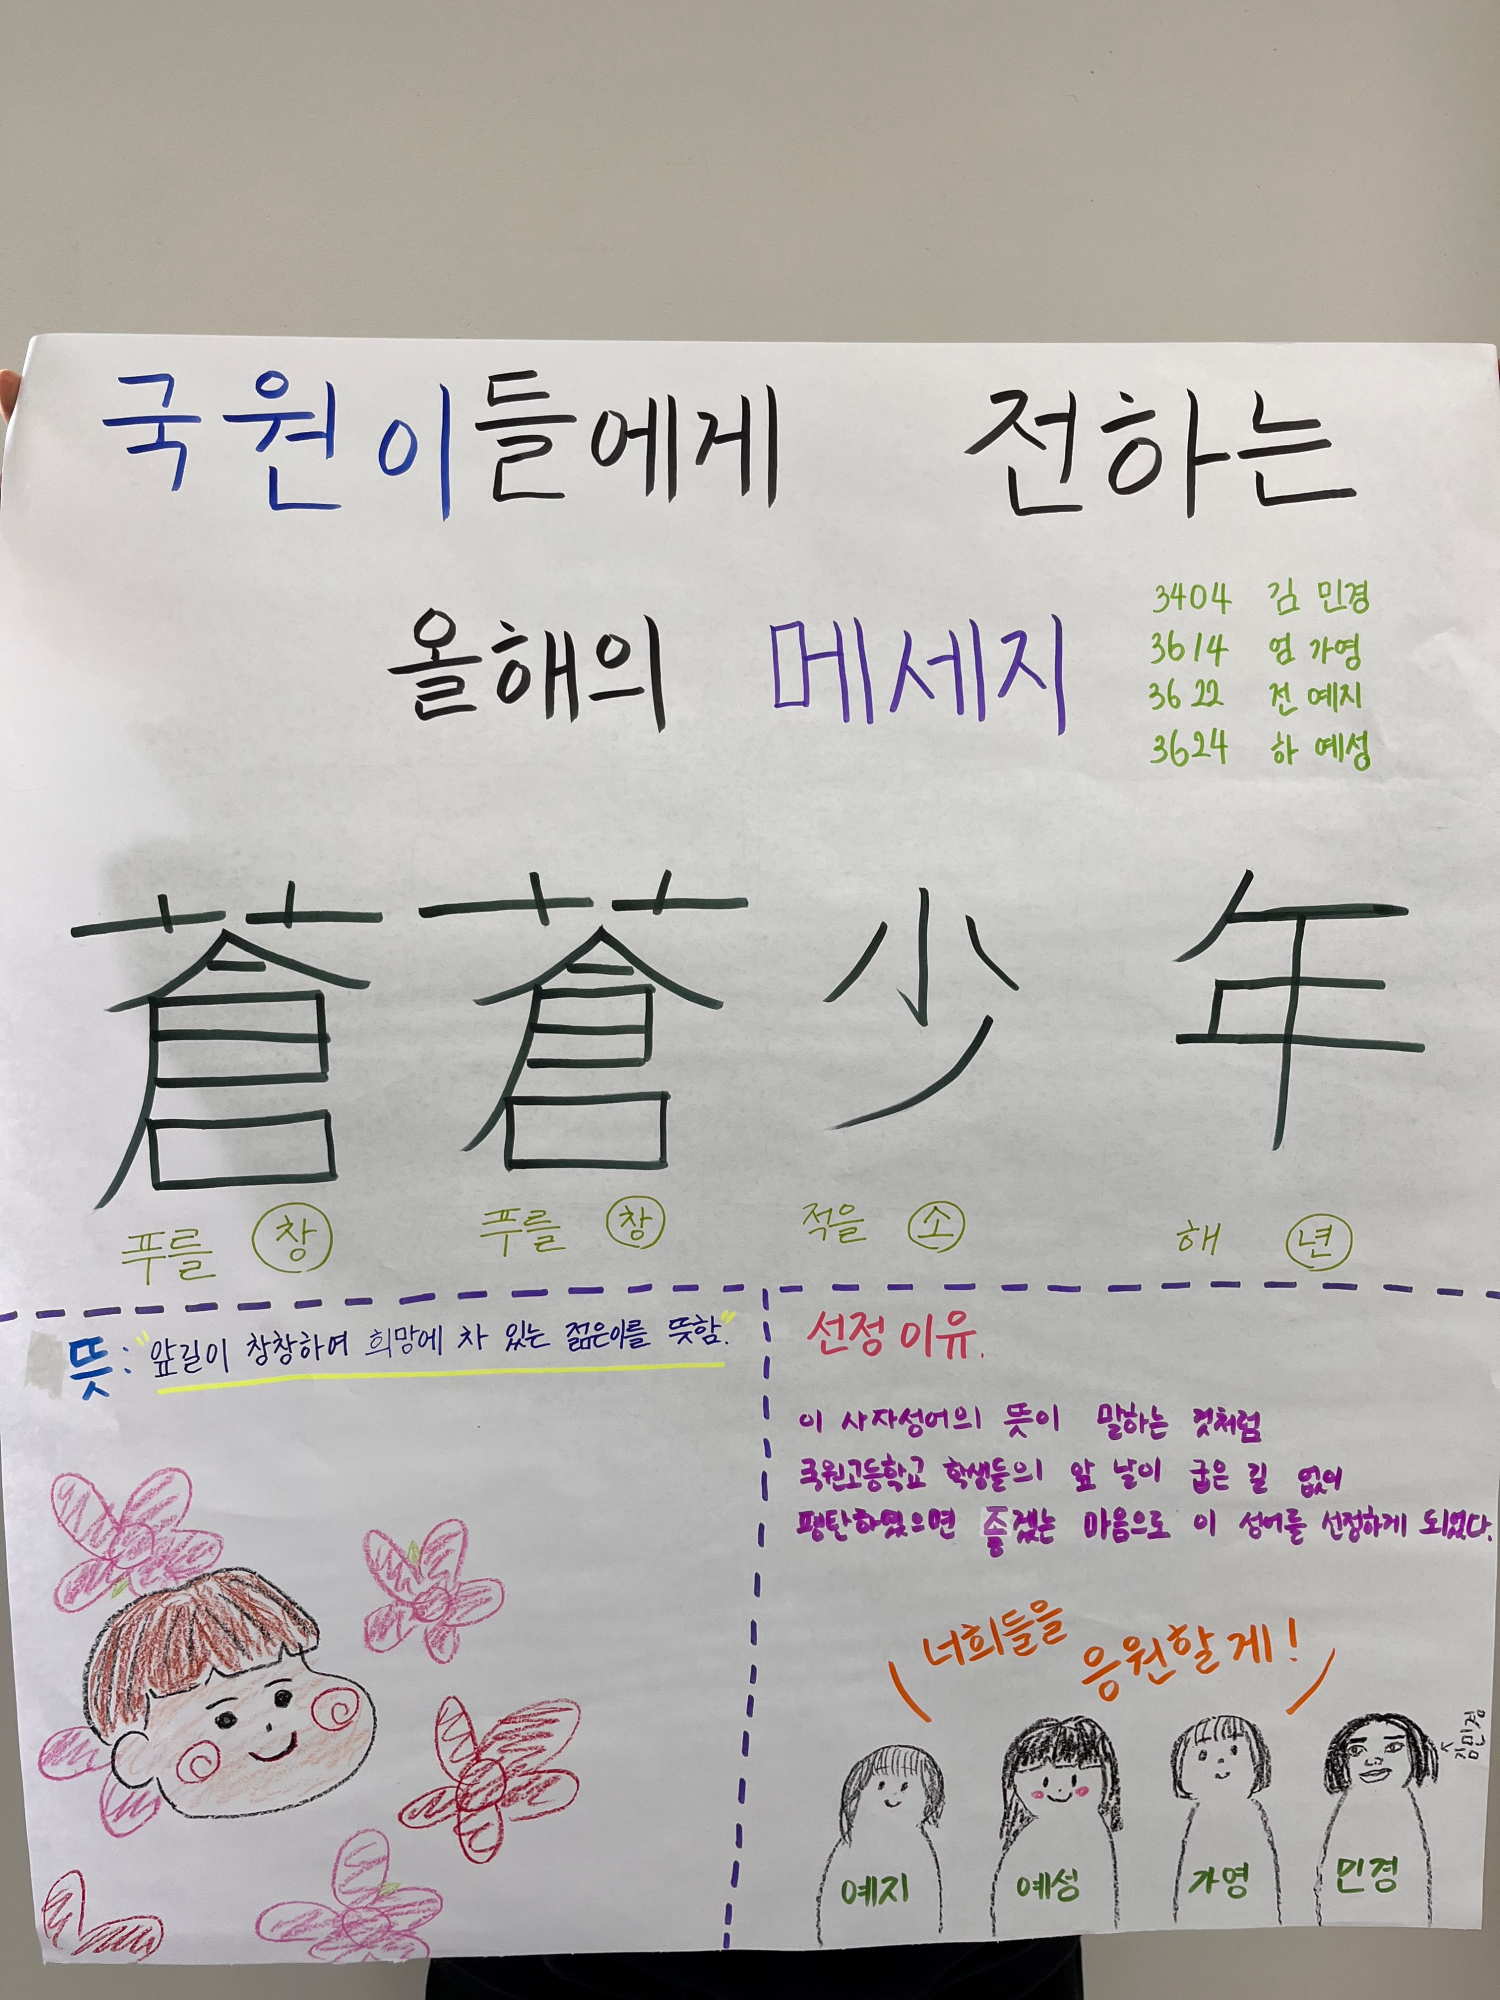 국원이들에게 전하는
올해의 메세지
3404 김민경
3614 엄가영
3622 전예지
3624 하예성
蒼蒼少年
푸를 창 푸를 창 적을 소 해 년
뜻: "앞길이 창창하여 희망에 차 있는 젊은이를 뜻함."
선정 이유.
이 사자성어의 뜻이 말하는 것처럼
국원고등학교 학생들의 앞 날이 굽은 길 없이
평탄하였으면 좋겠는 마음으로 이 성어를 선정하게 되었다.
너희들을 응원할게!
김민경
예지 예성 가영 민경